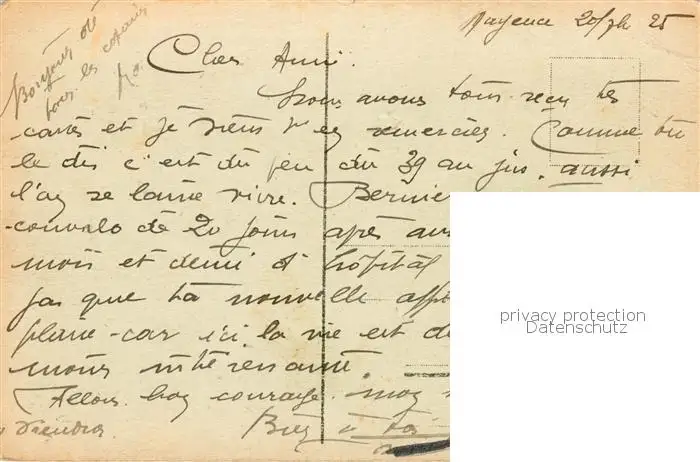 Mayence 20/7h 25
Bonjour de
tous les copains
Cher Ami.
Nous avons tous reçu tes
cartes et je viens t'en remercier. Comme tu
le dis c'est du feu du 39 au jus. aussi
l'on se laisse vivre. Bernier
convalo de 20 jours après
mois et demi d'hôpital
pas que ta nouvelle
plaire car ici la vie est de
moins intéressante.
Allons bon courage. moy
viendra.
Bien à toi
privacy protection
Datenschutz